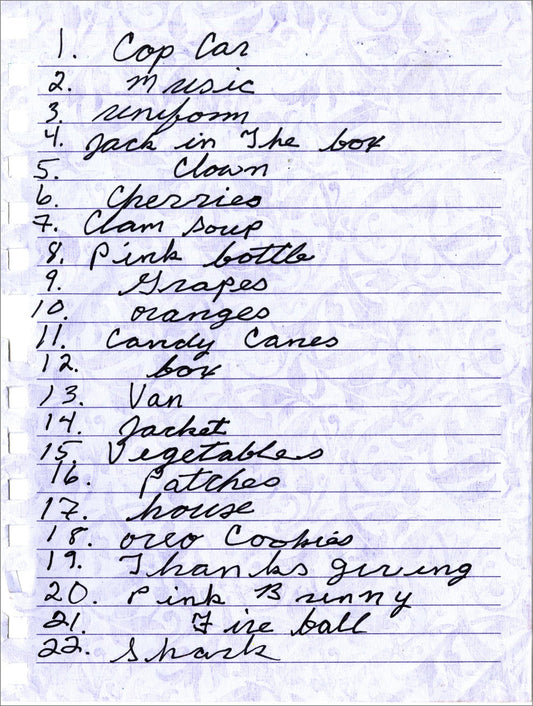 1. Cop Car
2. music
3. uniform
4. Jack in The box
5. Clown
6. Cherries
7. Clam Soup
8. Pink bottle
9. Grapes
10. oranges
11. Candy Canes
12. box
13. Van
14. Jacket
15. Vegetables
16. Patches
17. house
18. oreo Cookies
19. Thanks giving
20. Pink Bunny
21. Fire ball
22. Shark